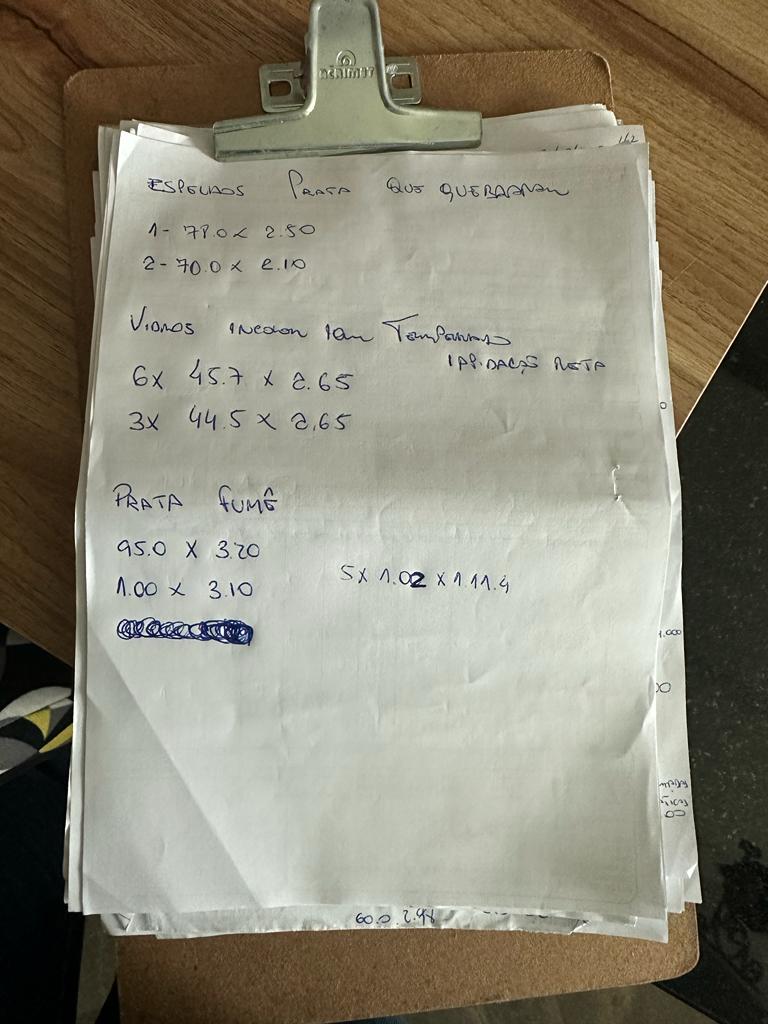 ESPELHOS PRATA QUE QUEBRARAM
1- 78.0 x 2.50
2- 70.0 x 2.10
VIDROS INCOLOR 10mm TEMPERADO
LAPIDAÇÃO RETA
6x 45.7 x 2.65
3x 44.5 x 2.65
PRATA FUMÊ
95.0 X 3.20
1.00 x 3.10
5x 1.02 x 1.11.4